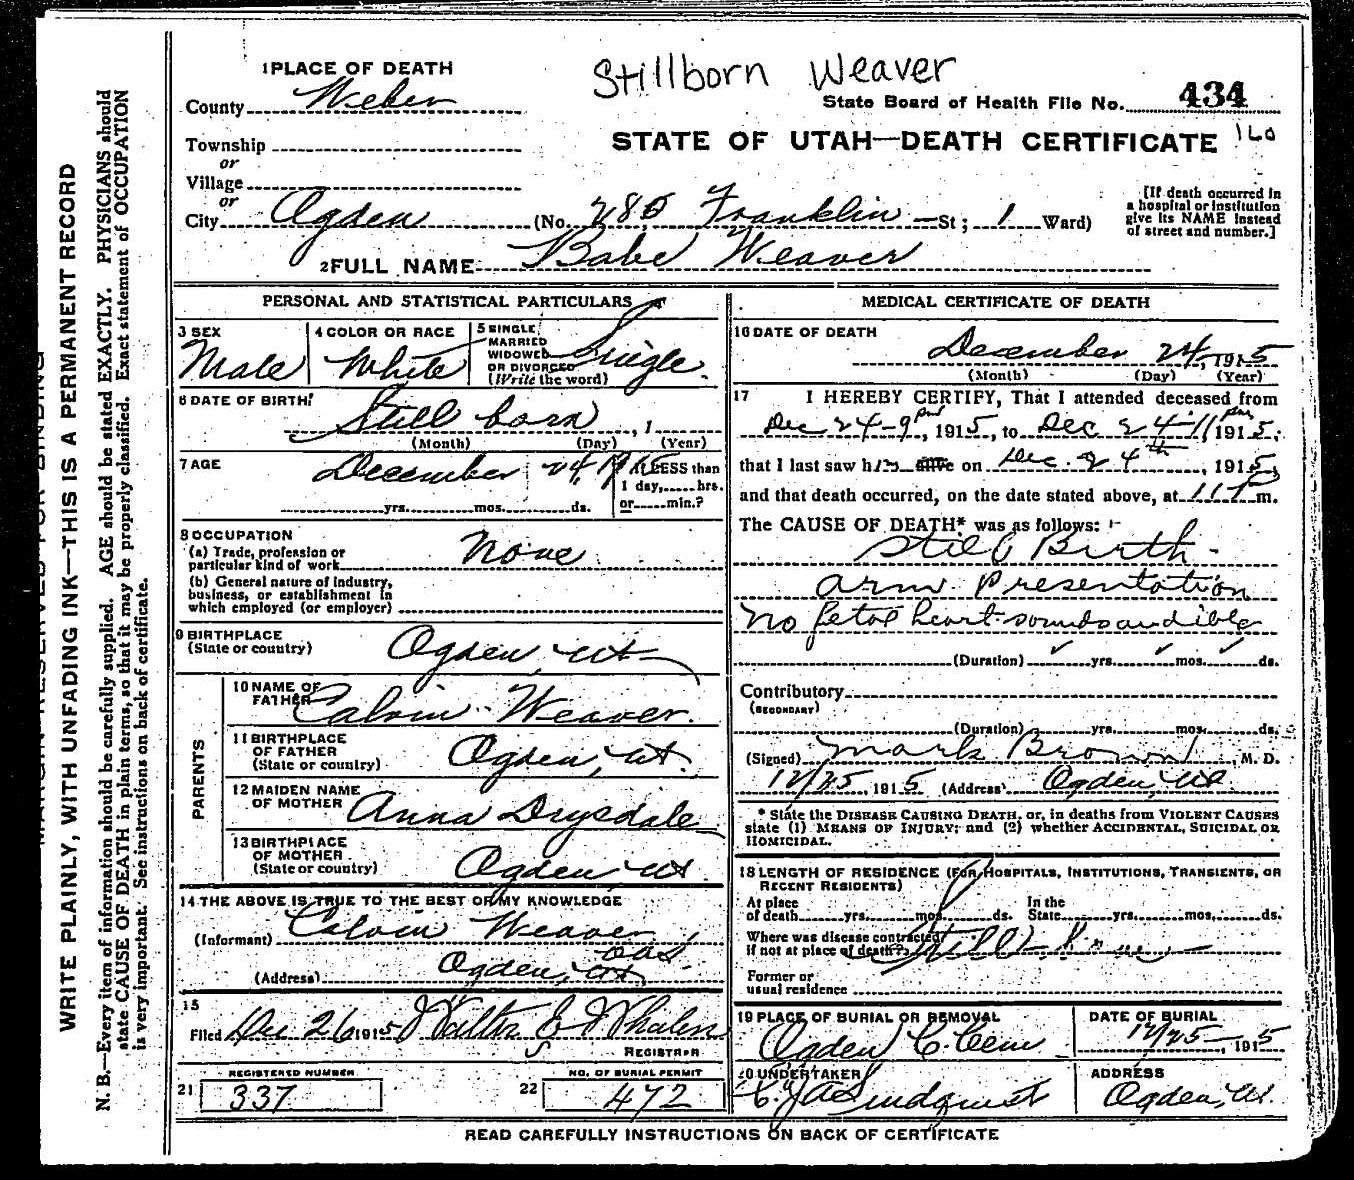 Stillborn Weaver
1 PLACE OF DEATH
County Weber
State Board of Health File No. 434
160
STATE OF UTAH—DEATH CERTIFICATE
Township
or
Village
or
City Ogden (No. 285 Franklin St; 1 Ward)
[If death occurred in
a hospital or institution
give its NAME instead
of street and number.]
2 FULL NAME Babe Weaver
PERSONAL AND STATISTICAL PARTICULARS
3 SEX
Male
4 COLOR OR RACE
White
5 SINGLE,
MARRIED
WIDOWED
OR DIVORCED
(Write the word)
Single.
6 DATE OF BIRTH
Still born, 1
(Month) (Day) (Year)
7 AGE
December 24, 1915
If LESS than
1 day,.....hrs.
or.....min.?
yrs. mos. ds.
8 OCCUPATION
(a) Trade, profession or
particular kind of work None
(b) General nature of industry,
business, or establishment in
which employed (or employer)
9 BIRTHPLACE
(State or country)
Ogden, Ut
PARENTS
10 NAME OF
FATHER
Calvin Weaver.
11 BIRTHPLACE
OF FATHER
(State or country)
Ogden, Ut.
12 MAIDEN NAME
OF MOTHER
Anna Drysdale
13 BIRTHPLACE
OF MOTHER
(State or country)
Ogden, Ut
14 THE ABOVE IS TRUE TO THE BEST OF MY KNOWLEDGE
(Informant) Calvin Weaver
(Address) Ogden, Ut
15
Filed Dec 26 1915 Walter E Whalen
REGISTRAR
REGISTERED NUMBER
21 337
NO. OF BURIAL PERMIT
22 472
MEDICAL CERTIFICATE OF DEATH
16 DATE OF DEATH
December 24, 1915
(Month) (Day) (Year)
17 I HEREBY CERTIFY, That I attended deceased from
Dec 24-9 pm, 1915, to Dec 24-11 pm 1915,
that I last saw him alive on Dec. 24th, 1915,
and that death occurred, on the date stated above, at 11 P m.
The CAUSE OF DEATH* was as follows:
Still Birth.
arm Presentation
No fetal heart sounds audible
(Duration) yrs. mos. ds.
Contributory
(SECONDARY)
(Duration) yrs. mos. ds.
(Signed) Mark Brown, M. D.
12/25, 1915 (Address) Ogden, Ut
* State the DISEASE CAUSING DEATH, or, in deaths from VIOLENT CAUSES
state (1) MEANS OF INJURY; and (2) whether ACCIDENTAL, SUICIDAL OR
HOMICIDAL.
18 LENGTH OF RESIDENCE (FOR HOSPITALS, INSTITUTIONS, TRANSIENTS, OR
RECENT RESIDENTS)
At place
of death yrs. mos. ds.
In the
State yrs. mos. ds.
Where was disease contracted
if not at place of death? Still Born
Former or
usual residence
19 PLACE OF BURIAL OR REMOVAL
Ogden C. Cem
DATE OF BURIAL
12/25, 1915
20 UNDERTAKER
C. J. A. Lindquist
ADDRESS
Ogden, Ut.
READ CAREFULLY INSTRUCTIONS ON BACK OF CERTIFICATE
WRITE PLAINLY, WITH UNFADING INK—THIS IS A PERMANENT RECORD
N. B.—Every item of information should be carefully supplied. AGE should be stated EXACTLY. PHYSICIANS should
state CAUSE OF DEATH in plain terms, so that it may be properly classified. Exact statement of OCCUPATION
is very important. See instructions on back of certificate.